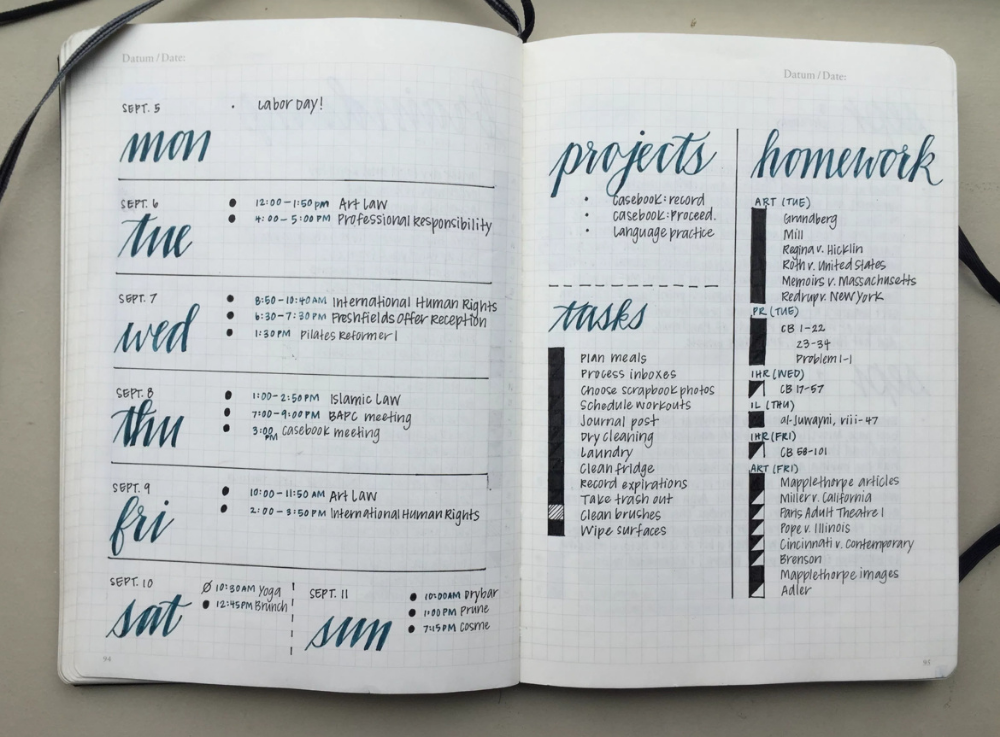 Datum / Date:
SEPT. 5
Labor Day!
mon
SEPT. 6
12:00-1:50 pm Art Law
4:00-5:00 PM Professional Responsibility
tue
SEPT. 7
8:50-10:40 AM International Human Rights
6:30-7:30 PM Freshfields Offer Reception
1:30 PM Pilates Reformer 1
wed
SEPT. 8
1:00-2:50 PM Islamic Law
7:00-9:00 PM BAPC meeting
3:00 PM Casebook meeting
thu
SEPT. 9
10:00-11:50 AM Art Law
2:00-3:50 PM International Human Rights
fri
SEPT. 10
10:30 AM Yoga
12:45 PM Brunch
sat
SEPT. 11
10:00 AM Drybar
1:00 PM Prune
7:45 PM Cosme
sun
94
Datum / Date:
projects
Casebook: record
Casebook: Proceed.
Language practice
tasks
Plan meals
Process inboxes
Choose scrapbook photos
Schedule workouts
Journal post
Dry cleaning
Laundry
Clean fridge
Record expirations
Take trash out
Clean brushes
Wipe surfaces
homework
ART (TUE)
Grandberg
Mill
Regina v. Hicklin
Roth v. United States
Memoirs v. Massachusetts
Redrup v. New York
PR (TUE)
CB 1-22
23-34
Problem 1-1
IHR (WED)
CB 17-57
IL (THU)
al-Juwayni, viii-47
IHR (FRI)
CB 58-101
ART (FRI)
Mapplethorpe articles
Miller v. California
Paris Adult Theatre I
Pope v. Illinois
Cincinnati v. Contemporary
Brenson
Mapplethorpe images
Adler
95